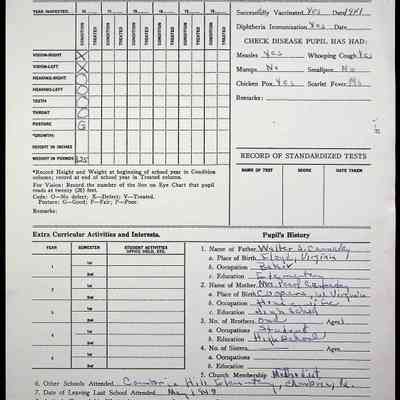 YEAR INSPECTED 19 19 19 19 19 19
CONDITION TREATED CONDITION TREATED CONDITION TREATED CONDITION TREATED CONDITION TREATED CONDITION TREATED
VISION-RIGHT X
VISION-LEFT X
HEARING-RIGHT O
HEARING-LEFT O
TEETH O
THROAT O
POSTURE G
*GROWTH:
HEIGHT IN INCHES
WEIGHT IN POUNDS 125
*Record Height and Weight at beginning of school year in Condition
column; record at end of school year in Treated column.
For Vision: Record the number of the line on Eye Chart that pupil
reads at twenty (20) feet.
Code: O—No defect; X—Defect; V—Treated.
Posture: G—Good; F—Fair; P—Poor.
Remarks:
Successfully Vaccinated Yes Date 1941
Diphtheria Immunization Yes Date
CHECK DISEASE PUPIL HAS HAD:
Measles Yes Whooping Cough Yes
Mumps No Smallpox No
Chicken Pox Yes Scarlet Fever No
Remarks:
RECORD OF STANDARDIZED TESTS
NAME OF TEST SCORE DATE TAKEN
Extra Curricular Activities and Interests.
YEAR SEMESTER STUDENT ACTIVITIES OFFICE HELD, ETC.
1 1st
2nd
2 1st
2nd
3 1st
2nd
4 1st
2nd
Pupil's History
1. Name of Father Walter S.
a. Place of Birth Floyd, Virginia
b. Occupation Baker
c. Education Elementary
2. Name of Mother Mrs. Pearl S.
a. Place of Birth Coopers, W. Virginia
b. Occupation Housewife
c. Education High School
3. No. of Brothers One Ages
a. Occupations Student
b. Education High School
4. No. of Sisters Ages
a. Occupations
b. Education
5. Church Membership Methodist
6. Other Schools Attended Cambria Hill Elementary,
7. Date of Leaving Last School Attended May, 1949